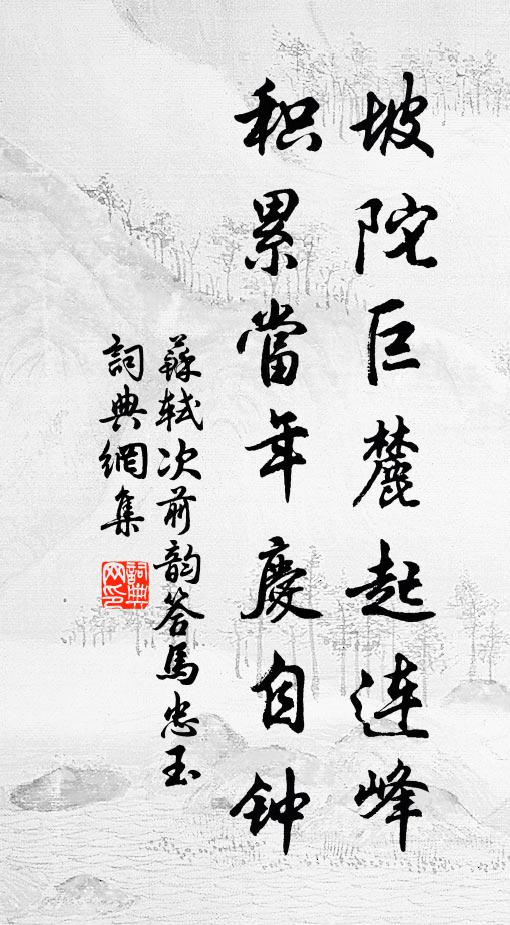 坡陀巨麓起连峰
积累當年慶自钟
蘇轼次前韵答馬忠玉
詞典網集
詞典网印